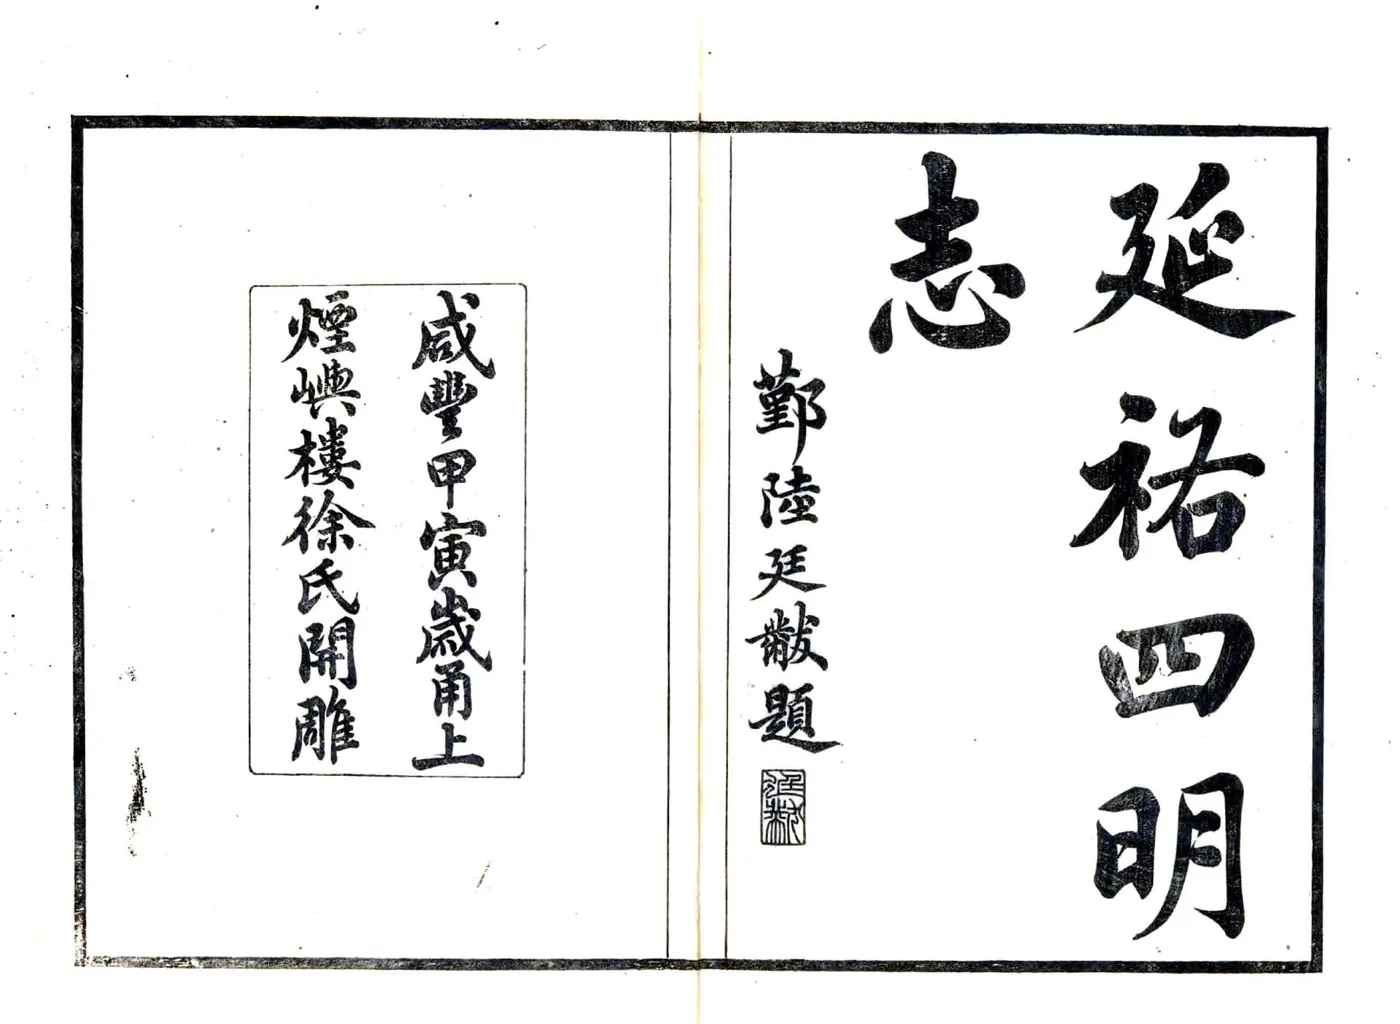 延祐四明
志
鄞陸廷黻題
廷黻
咸豐甲寅歲甬上
煙嶼樓徐氏開雕